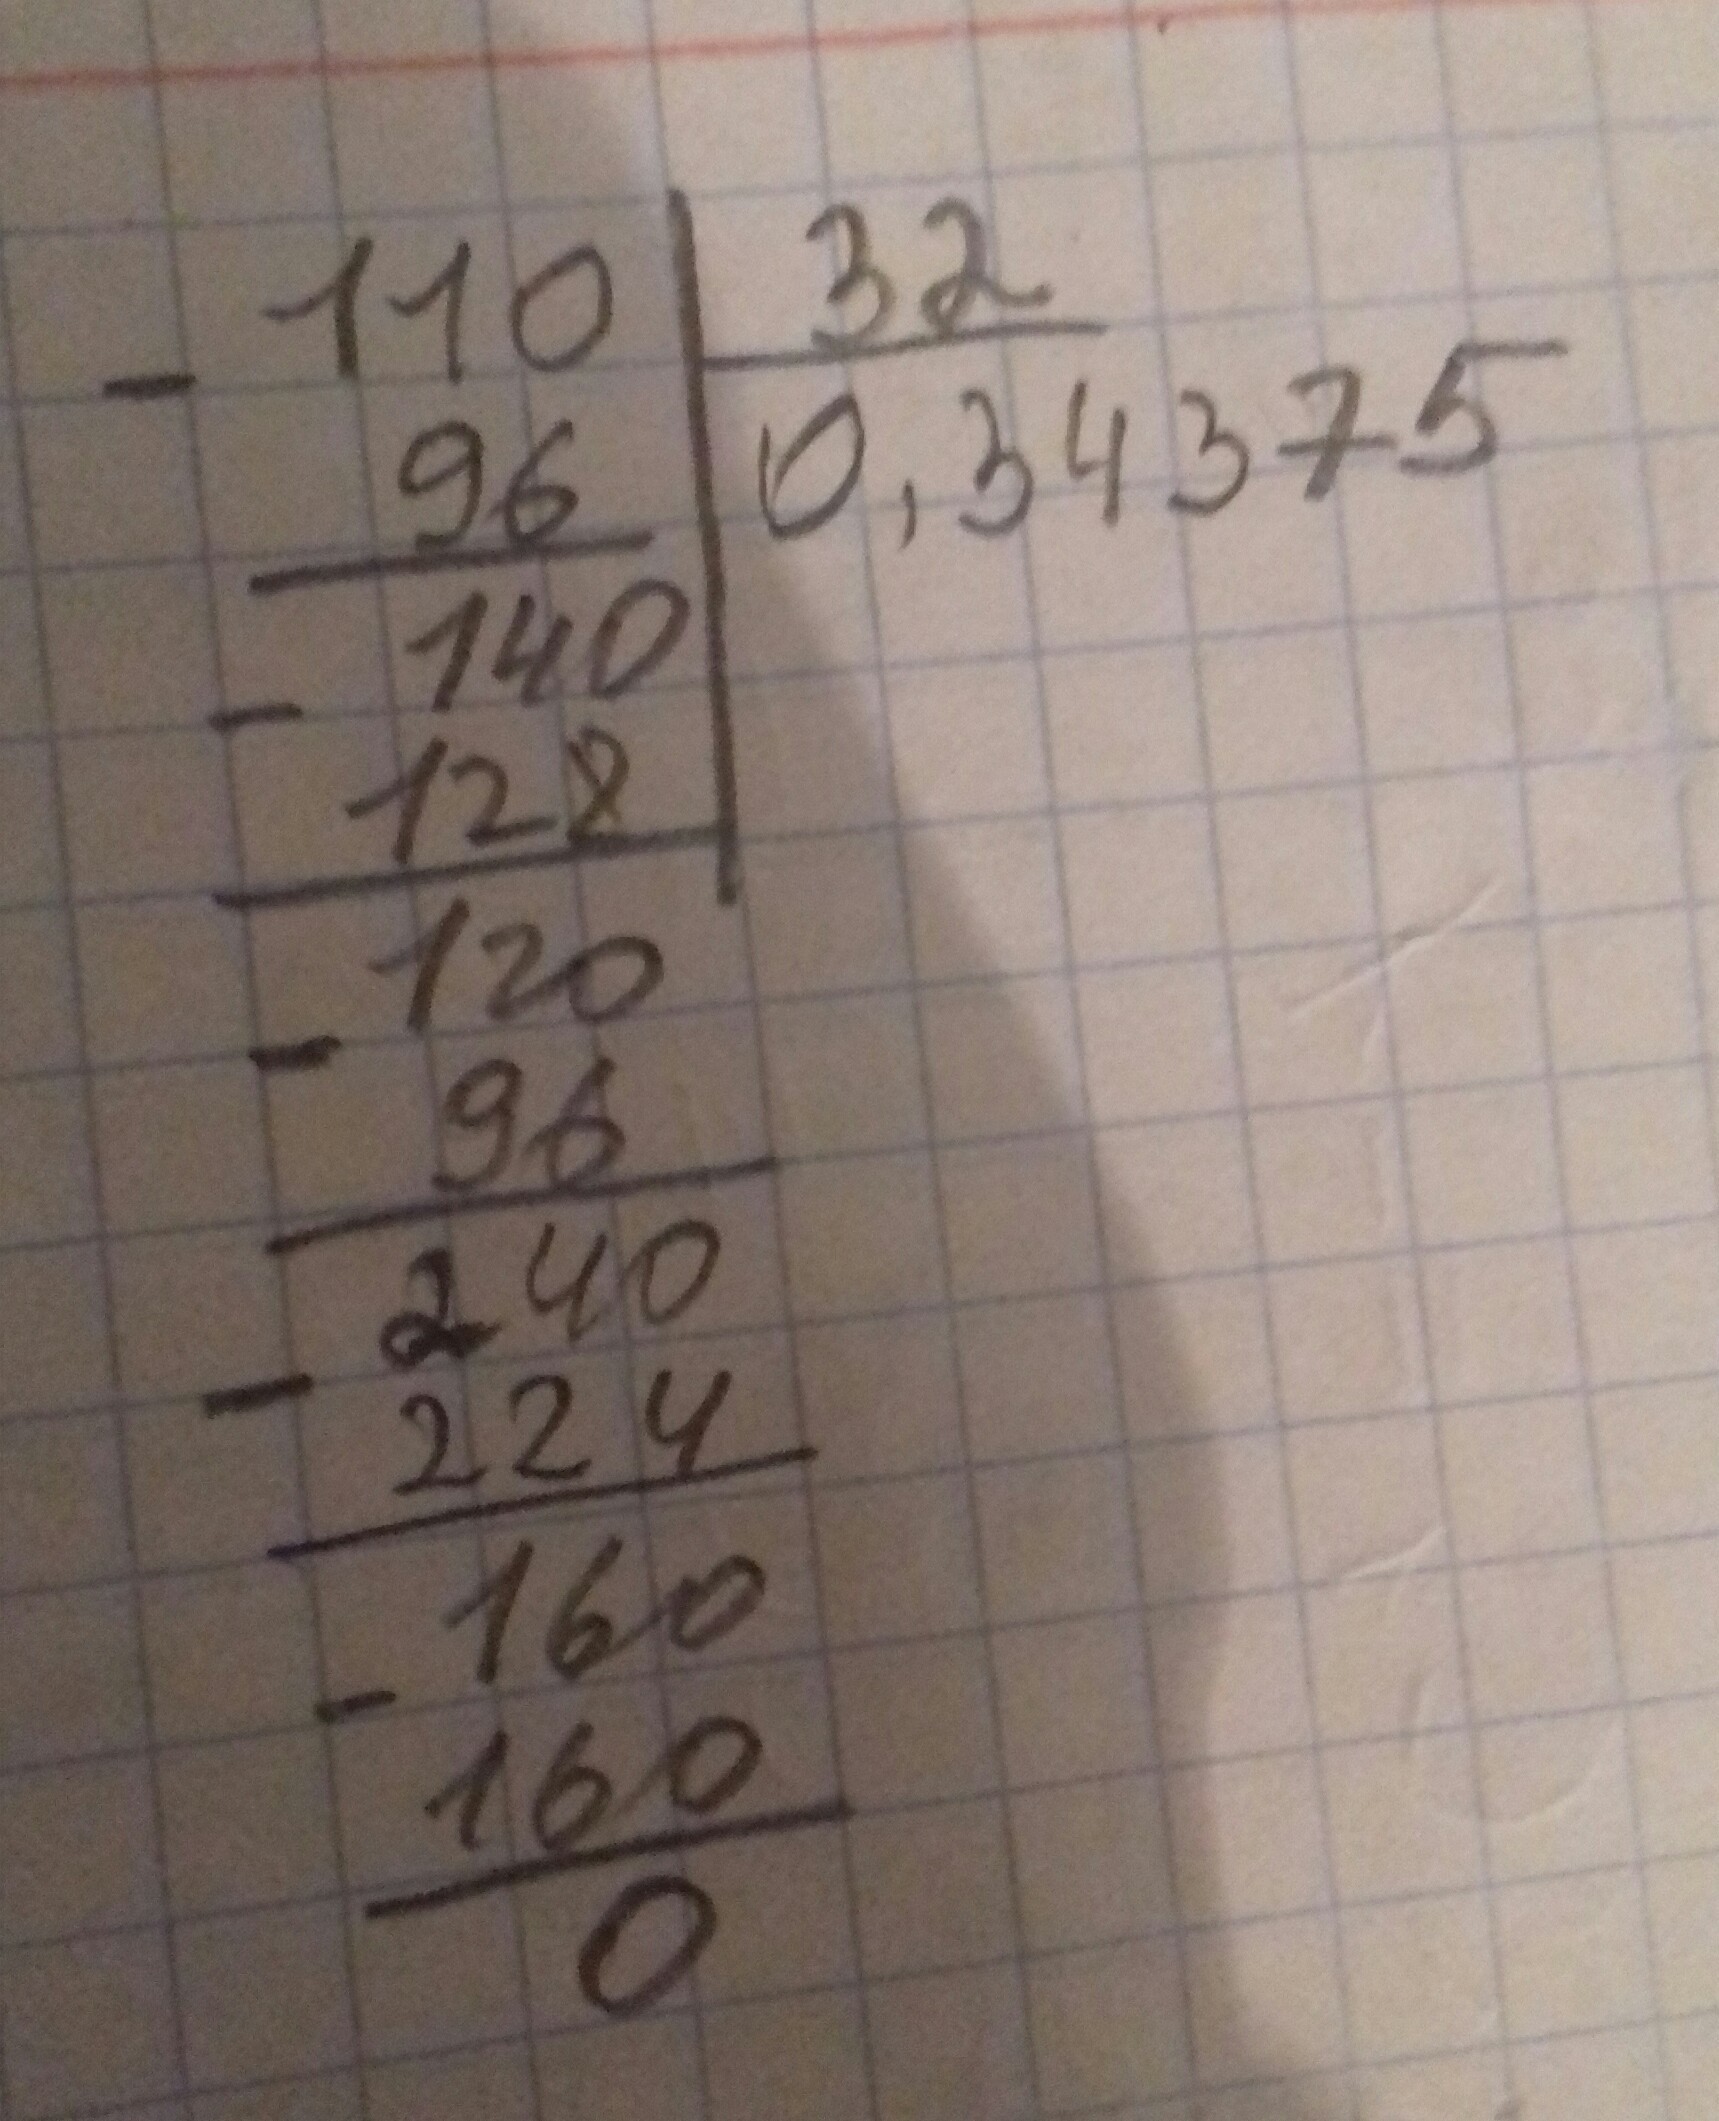 110 32
- 96 0,34375
140
- 128
120
- 96
240
- 224
160
- 160
0